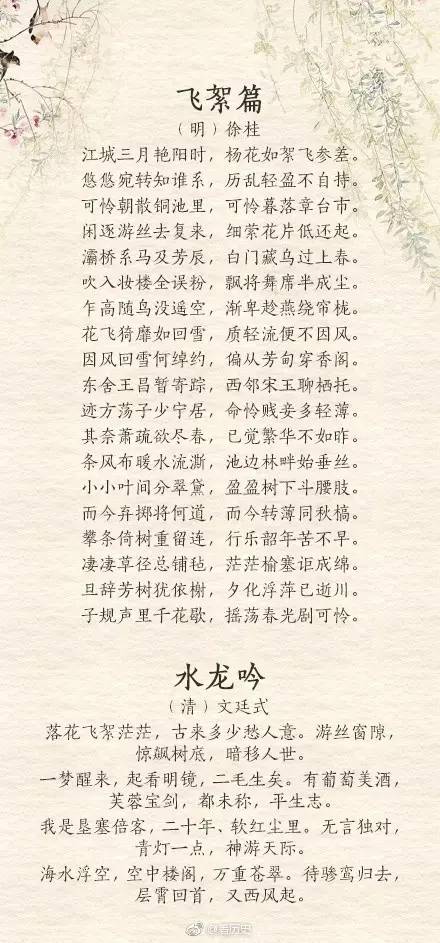 飞絮篇
（明）徐桂
江城三月艳阳时，杨花如絮飞参差。
悠悠宛转知谁系，历乱轻盈不自持。
可怜朝散铜池里，可怜暮落章台市。
闲逐游丝去复来，细萦花片低还起。
灞桥系马及芳辰，白门藏乌过上春。
吹入妆楼全误粉，飘将舞席半成尘。
乍高随鸟没遥空，渐卑趁燕绕帘栊。
花飞猗靡如回雪，质轻流便不因风。
因风回雪何绰约，偏从芳甸穿香阁。
东舍王昌暂寄踪，西邻宋玉聊栖托。
迹方荡子少宁居，命怜贱妾多轻薄。
其奈萧疏欲尽春，已觉繁华不如昨。
条风布暖水流澌，池边林畔始垂丝。
小小叶间分翠黛，盈盈树下斗腰肢。
而今弃掷将何道，而今转薄同秋槁。
攀条倚树重留连，行乐韶年苦不早。
凄凄草径总铺毡，茫茫榆塞讵成绵。
旦辞芳树犹依榭，夕化浮萍已逝川。
子规声里千花歇，摇荡春光剧可怜。
水龙吟
（清）文廷式
落花飞絮茫茫，古来多少愁人意。游丝窗隙，
惊飙树底，暗移人世。
一梦醒来，起看明镜，二毛生矣。有葡萄美酒，
芙蓉宝剑，都未称，平生志。
我是垦塞倍客，二十年、软红尘里。无言独对，
青灯一点，神游天际。
海水浮空，空中楼阁，万重苍翠。待骖鸾归去，
层霄回首，又西风起。
@看历史